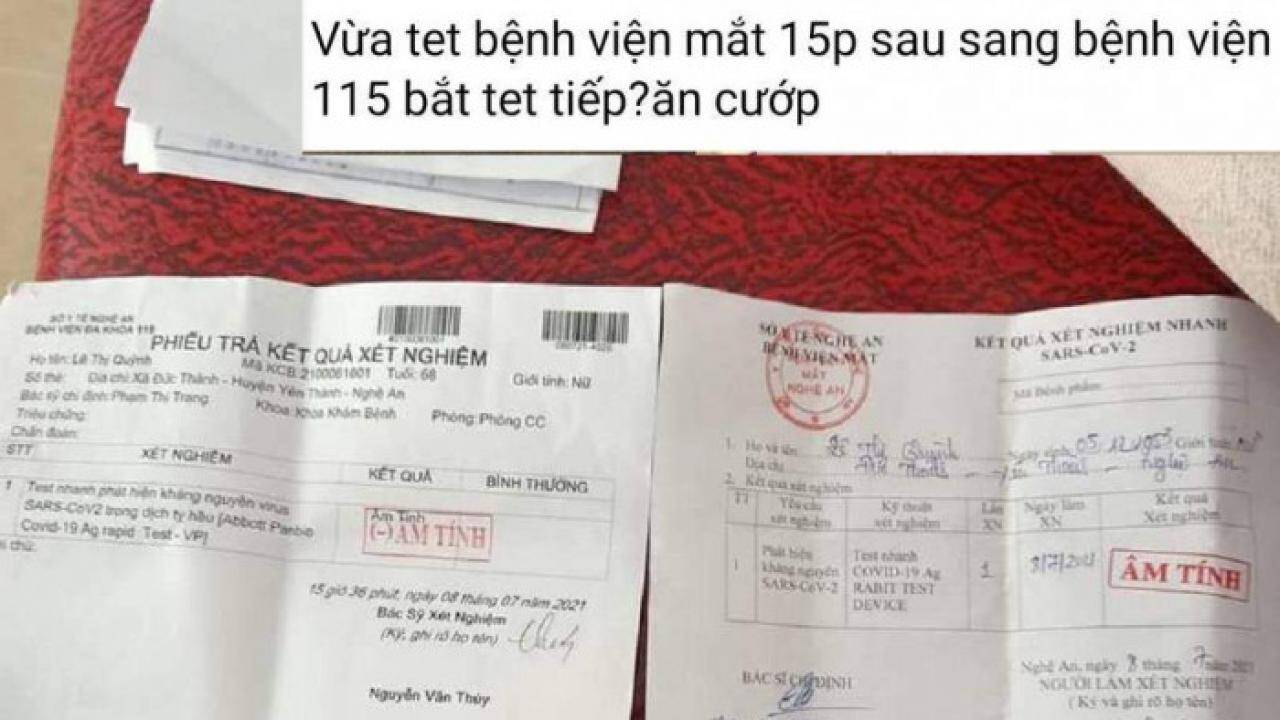 Vừa tet bệnh viện mắt 15p sau sang bệnh viện
115 bắt tet tiếp?ăn cướp
SỞ Y TẾ NGHỆ AN
BỆNH VIỆN ĐA KHOA 115
PHIẾU TRẢ KẾT QUẢ XÉT NGHIỆM
Họ tên: Lê Thị Quỳnh
Mã KCB: 2100061601 Tuổi: 68
Giới tính: Nữ
Số thẻ: Địa chỉ: Xã Đức Thành - Huyện Yên Thành - Nghệ An
Bác sỹ chỉ định: Phạm Thị Trang Khoa: Khoa Khám Bệnh Phòng: Phòng CC
Triệu chứng:
Chẩn đoán:
STT XÉT NGHIỆM KẾT QUẢ BÌNH THƯỜNG
1 Test nhanh phát hiện kháng nguyên virus
SARS-CoV2 trong dịch tỵ hầu [Abbott Panbio
Covid-19 Ag rapid Test - VP]
Âm Tính
(-) ÂM TÍNH
chú:
15 giờ 36 phút, ngày 08 tháng 07 năm 2021
Bác Sỹ Xét Nghiệm
(Ký, ghi rõ họ tên)
Nguyễn Văn Thúy
SỞ Y TẾ NGHỆ AN
BỆNH VIỆN MẮT
MẮT
NGHỆ AN
KẾT QUẢ XÉT NGHIỆM NHANH
SARS-CoV-2
Mã Bệnh phẩm:
1. Họ và tên Lê Thị Quỳnh Ngày sinh 05.12.1953 Giới tính Nữ
Địa chỉ Nghệ An
2. Kết quả xét nghiệm
TT Yêu cầu xét nghiệm Kỹ thuật xét nghiệm Lần XN Ngày làm XN Kết quả Xét nghiệm
1 Phát hiện kháng nguyên SARS-CoV-2 Test nhanh COVID-19 Ag RABIT TEST DEVICE 1 8/7/2021 ÂM TÍNH
Nghệ An, ngày 8 tháng 7 năm 2021
BÁC SĨ CHỈ ĐỊNH
NGƯỜI LÀM XÉT NGHIỆM
(Ký và ghi rõ họ tên)